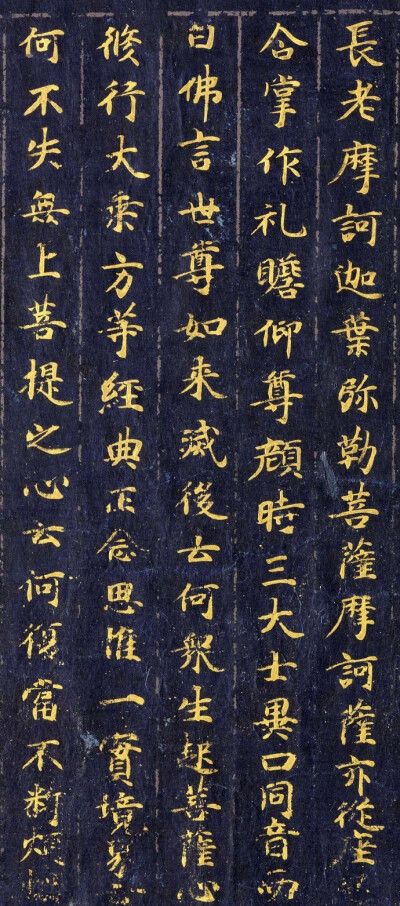 長老摩訶迦葉弥勒菩薩摩訶薩亦從座
合掌作礼瞻仰尊顔時三大士異口同音而
白佛言世尊如来滅後云何衆生起菩薩心
修行大乘方等經典正念思惟一實境界云
何不失無上菩提之心云何復當不断煩惱